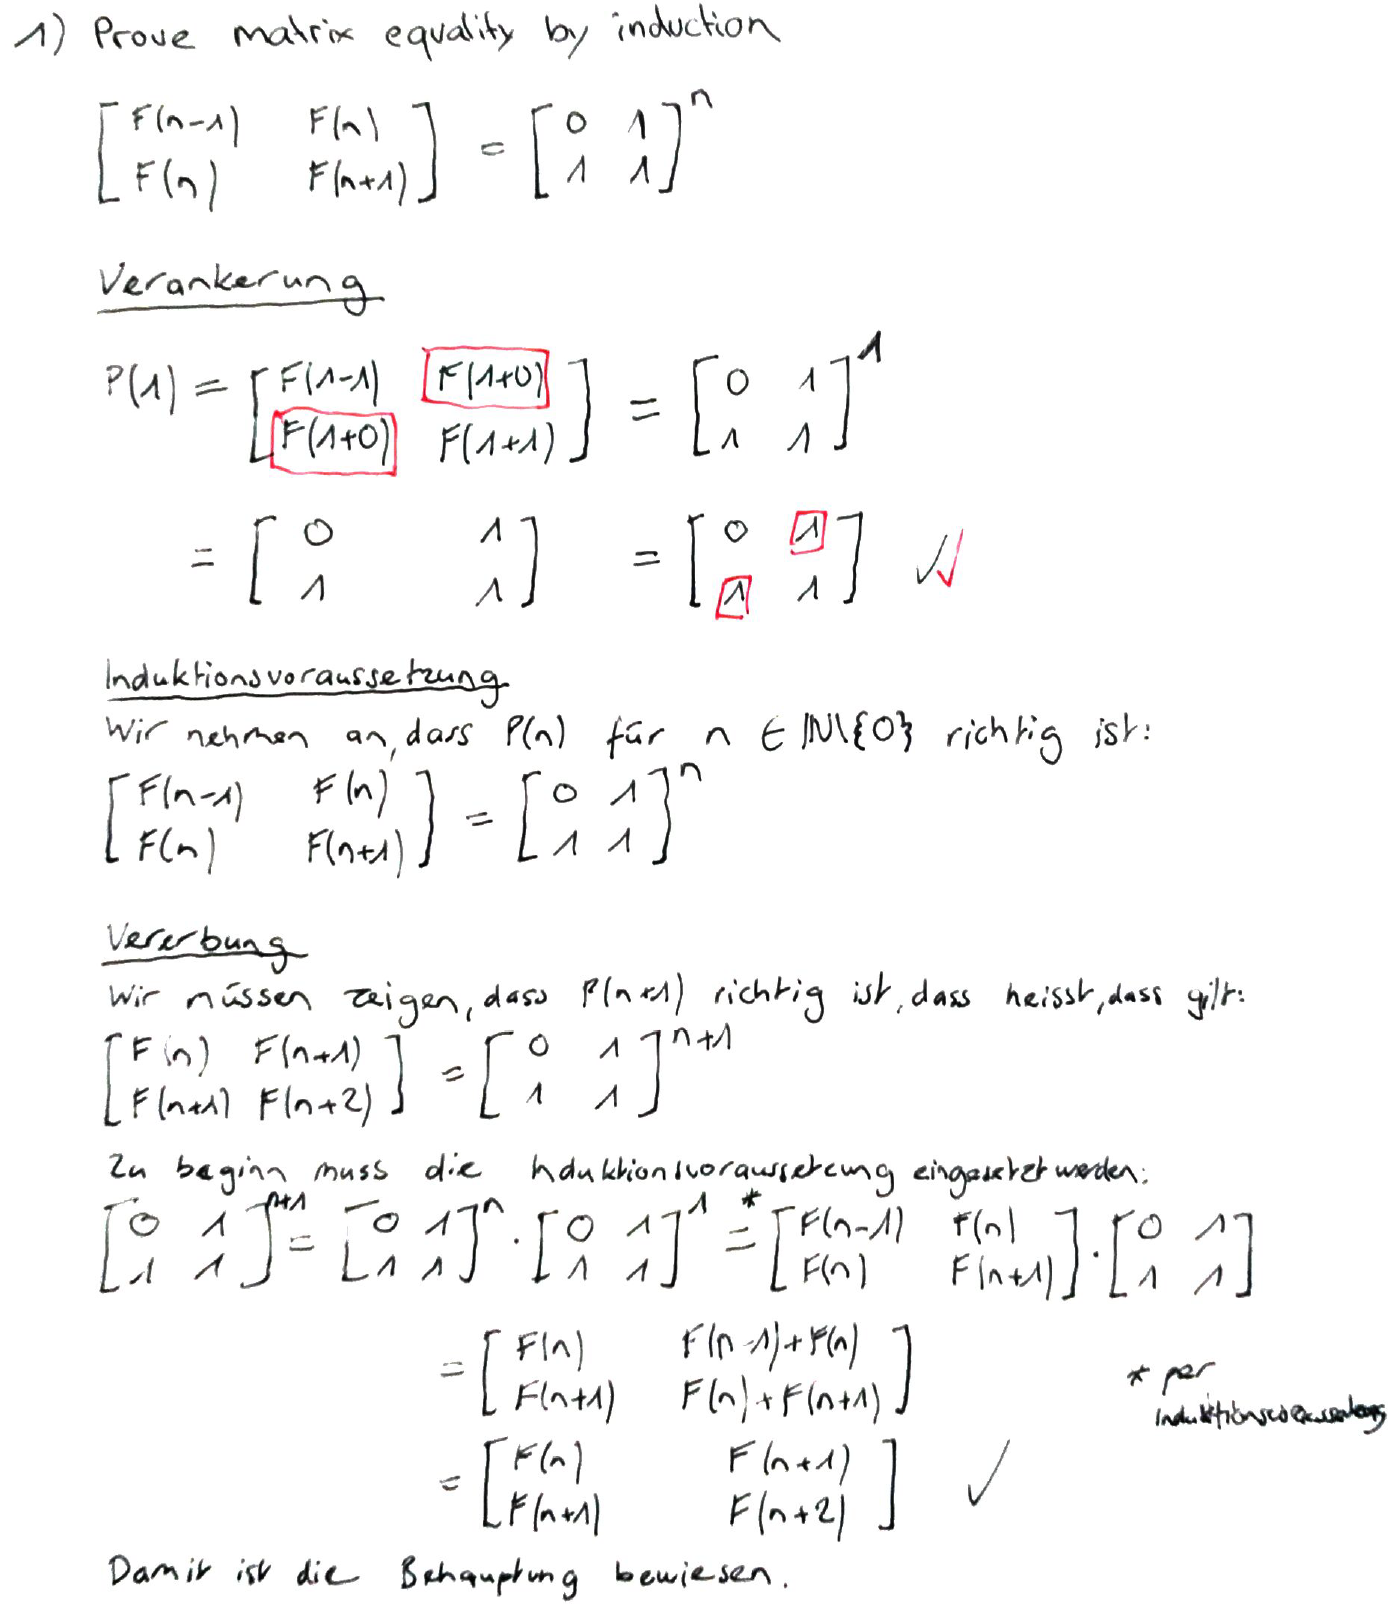 1) Prove matrix equality by induction
[ F(n-1) F(n) ] = [ 0 1 ]^n
[ F(n) F(n+1) ] [ 1 1 ]
Verankerung
P(1) = [ F(1-1) F(1+0) ] = [ 0 1 ]^1
[ F(1+0) F(1+1) ] [ 1 1 ]
= [ 0 1 ] = [ 0 1 ] ✓✓
[ 1 1 ] [ 1 1 ]
Induktionsvoraussetzung
Wir nehmen an, dass P(n) für n ∈ ℕ\{0} richtig ist:
[ F(n-1) F(n) ] = [ 0 1 ]^n
[ F(n) F(n+1) ] [ 1 1 ]
Vererbung
Wir müssen zeigen, dass P(n+1) richtig ist, dass heisst, dass gilt:
[ F(n) F(n+1) ] = [ 0 1 ]^n+1
[ F(n+1) F(n+2) ] [ 1 1 ]
Zu beginn muss die Induktionsvoraussetzung eingesetzt werden:
[ 0 1 ]^n+1 = [ 0 1 ]^n · [ 0 1 ]^1 =* [ F(n-1) F(n) ] · [ 0 1 ]
[ 1 1 ] [ 1 1 ] [ 1 1 ] [ F(n) F(n+1) ] [ 1 1 ]
= [ F(n) F(n-1)+F(n) ]
[ F(n+1) F(n)+F(n+1) ]
* per
Induktionsvoraussetzung
= [ F(n) F(n+1) ] ✓
[ F(n+1) F(n+2) ]
Damit ist die Behauptung bewiesen.